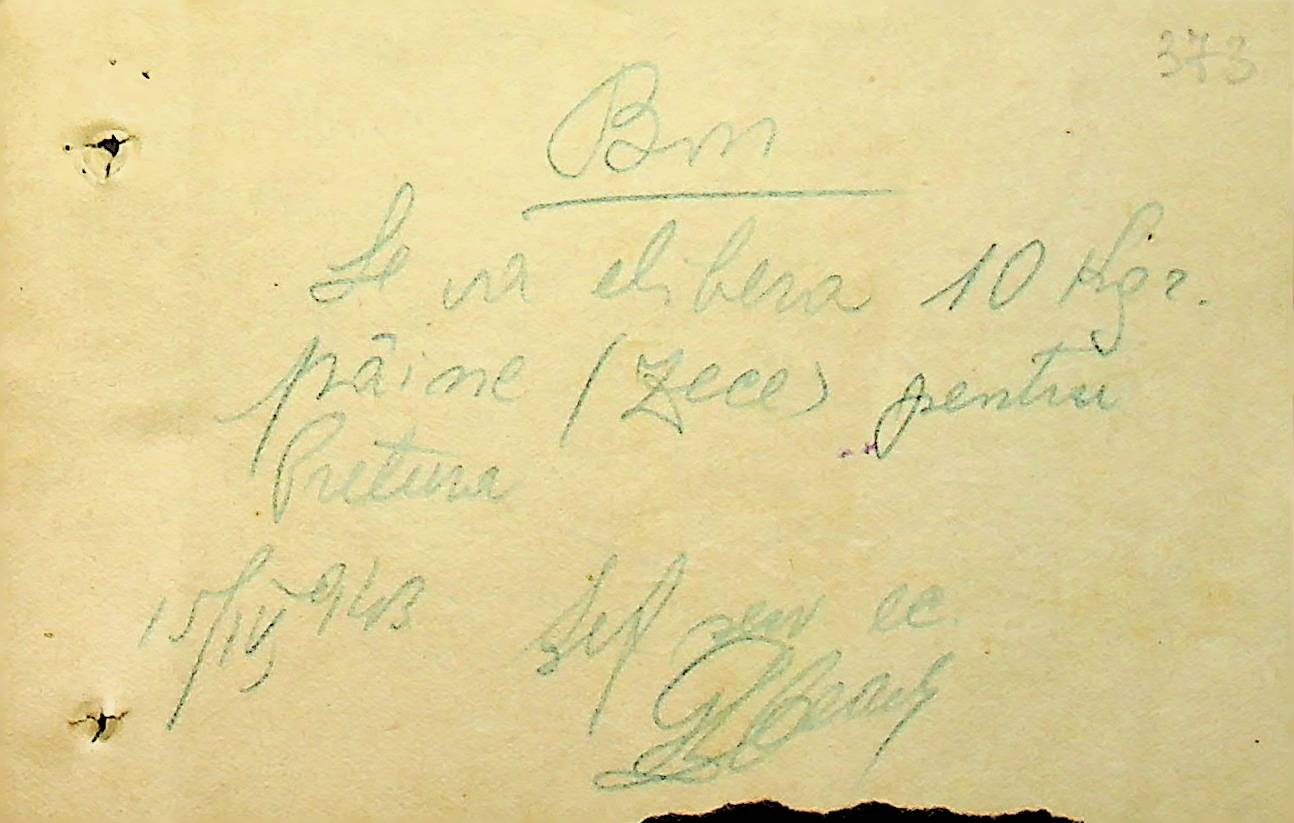 373
Bon
Se va elibera 10 Kgr.
pâine (Zece) pentru
Pretura
15/IV 943 Șef serv ec.